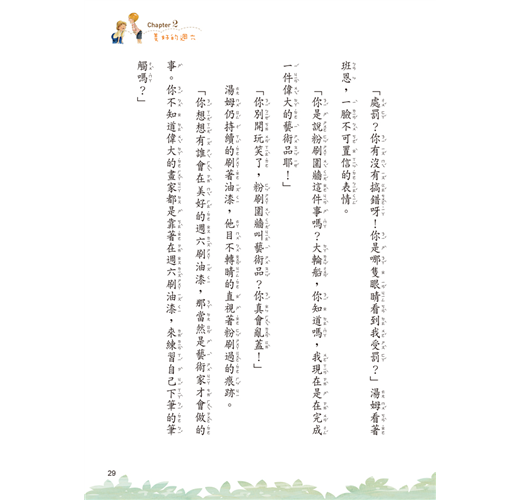 Chapter 2
美好的週六
「處罰?你有沒有搞錯呀!你是哪隻眼睛看到我受罰?」湯姆看著
班恩,一臉不可置信的表情。
「你是說粉刷圍牆這件事嗎?大輪船,你知道嗎,我現在是在完成
一件偉大的藝術品耶!」
「你別開玩笑了,粉刷圍牆叫藝術品?你真會亂蓋!」
湯姆仍持續的刷著油漆,他目不轉睛的直視著粉刷過的痕跡。
「你想想有誰會在美好的週六刷油漆,那當然是藝術家才會做的
事。你不知道偉大的畫家都是靠著在週六刷油漆,來練習自己下筆的筆
觸嗎?」
29